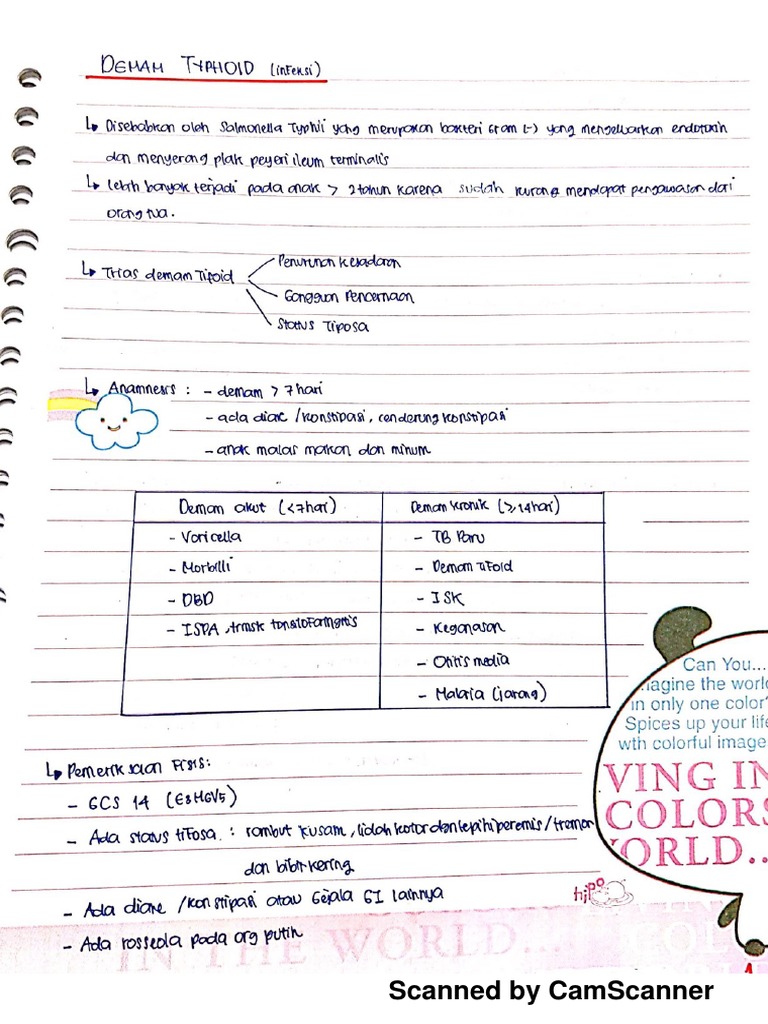 DEMAM TYPHOID (infeksi)
↳ Disebabkan oleh Salmonella Typhii yang merupakan bakteri Gram (-) yang mengeluarkan endotoxin
dan menyerang plak peyeri ileum terminalis
↳ lebih banyak terjadi pada anak > 2 tahun karena sudah kurang mendapat pengawasan dari
orang tua.
↳ Trias demam Tifoid
Penurunan kesadaran
Gangguan Pencernaan
Status Tiposa
↳ Anamnesis : - demam > 7 hari
- ada diare / konstipasi, cenderung konstipasi
- anak malas makan dan minum
Demam akut (<7 hari) Demam kronik (≥ 14 hari)
- Varicella - TB Paru
- Morbilli - Demam Tifoid
- DBD - ISK
- ISPA, trmsk tonsilofaringitis - Keganasan
- Otitis media
- Malaria (jarang)
↳ Pemeriksaan Fisis:
- GCS 14 (E3M6V5)
- Ada status tifosa : rambut kusam, lidah kotor dan tepi hiperemis / tremor
dan bibir kering
- Ada diare / konstipasi atau Gejala GI lainnya
- Ada rosseola pada org putih
Can You...
magine the world
in only one color?
Spices up your life
wth colorful image
VING IN
COLORS
ORLD...
hipo
IN THE WORLD...
Scanned by CamScanner